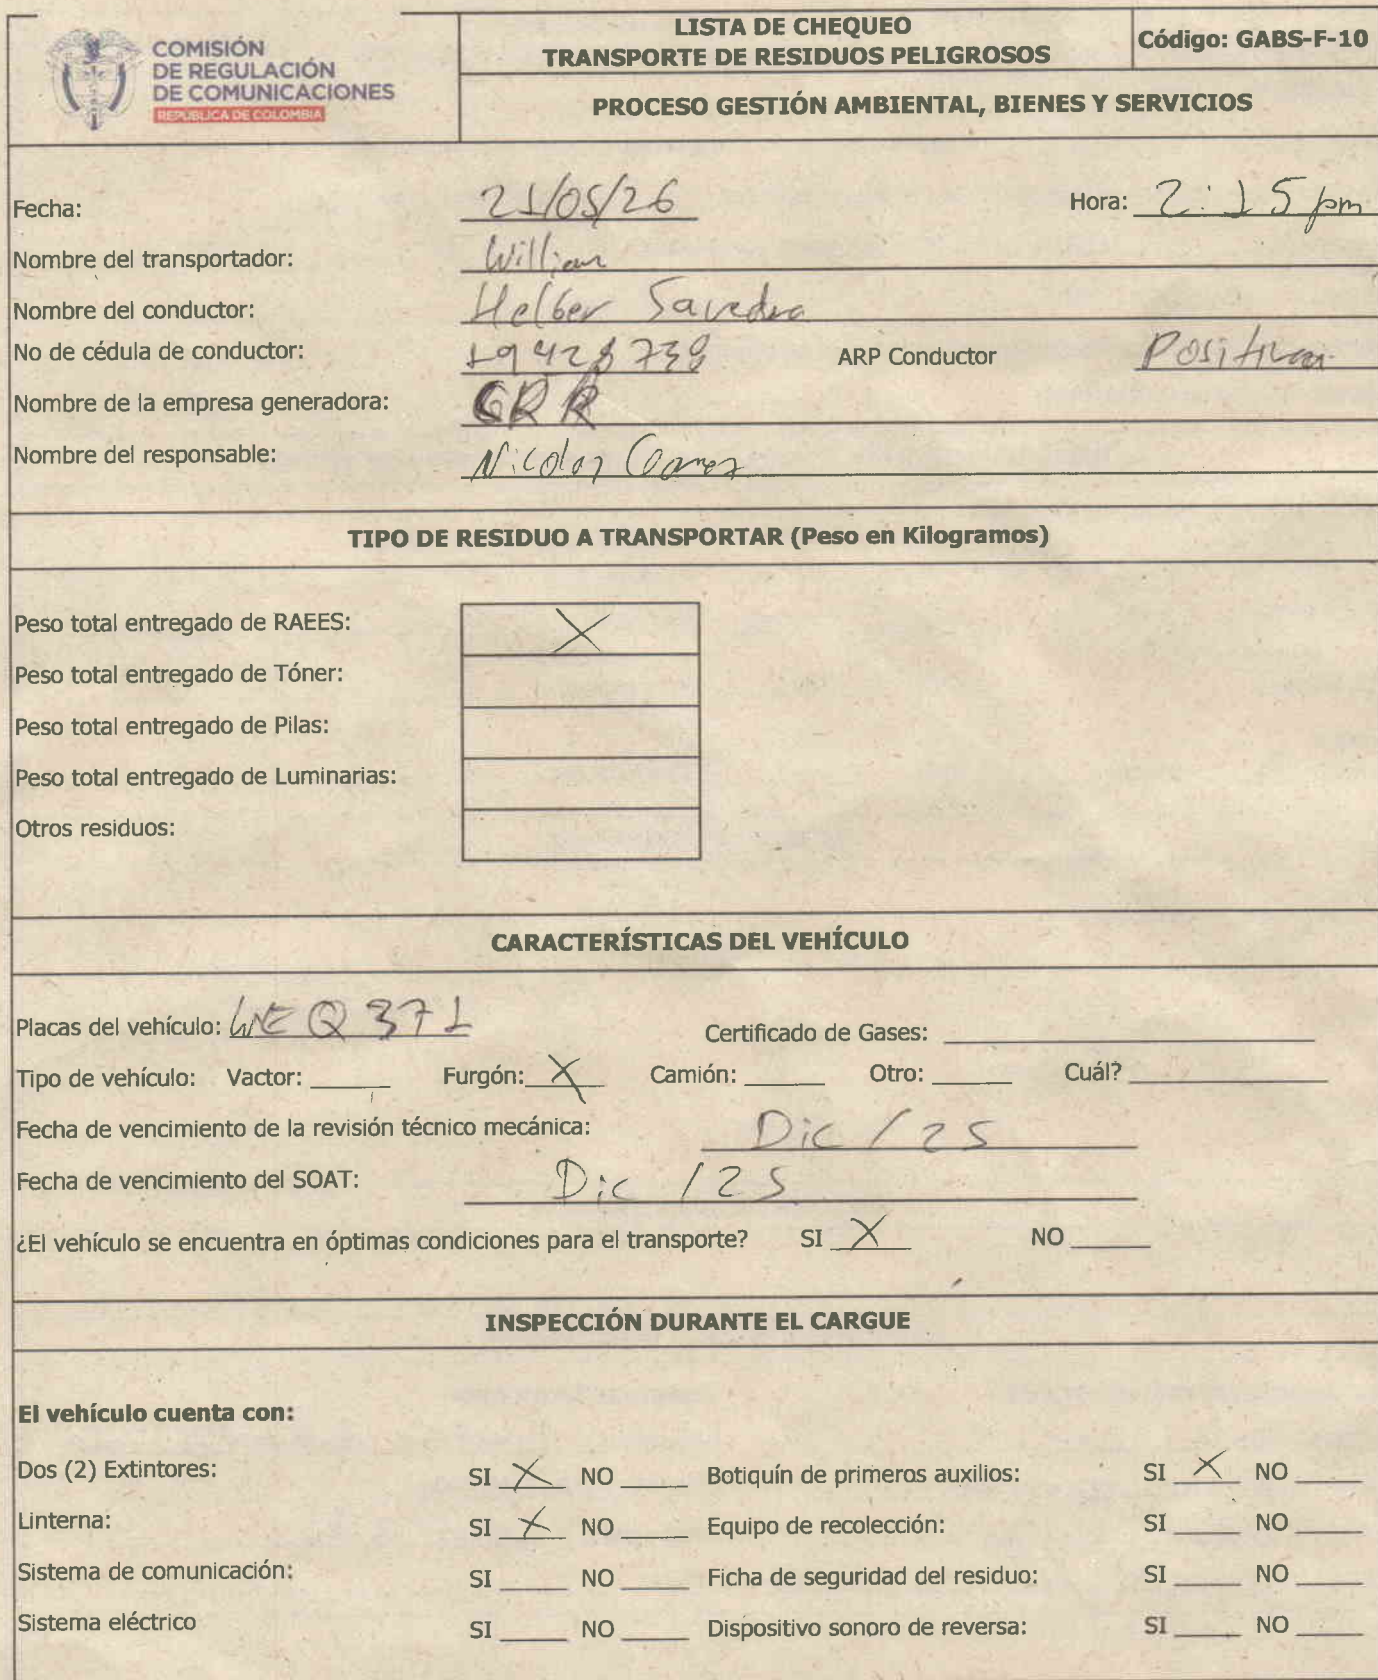 COMISIÓN
DE REGULACIÓN
DE COMUNICACIONES
REPÚBLICA DE COLOMBIA
LISTA DE CHEQUEO
TRANSPORTE DE RESIDUOS PELIGROSOS
Código: GABS-F-10
PROCESO GESTIÓN AMBIENTAL, BIENES Y SERVICIOS
Fecha: 21/05/26 Hora: 2:15 pm
Nombre del transportador: William
Nombre del conductor: Helber Savedra
No de cédula de conductor: 19428738 ARP Conductor Positiva
Nombre de la empresa generadora:
Nombre del responsable: Nicolas Gomez
TIPO DE RESIDUO A TRANSPORTAR (Peso en Kilogramos)
Peso total entregado de RAEES: X
Peso total entregado de Tóner:
Peso total entregado de Pilas:
Peso total entregado de Luminarias:
Otros residuos:
CARACTERÍSTICAS DEL VEHÍCULO
Placas del vehículo: WEQ 371 Certificado de Gases:
Tipo de vehículo: Vactor: Furgón: X Camión: Otro: Cuál?
Fecha de vencimiento de la revisión técnico mecánica: Dic / 25
Fecha de vencimiento del SOAT: Dic / 25
¿El vehículo se encuentra en óptimas condiciones para el transporte? SI X NO
INSPECCIÓN DURANTE EL CARGUE
El vehículo cuenta con:
Dos (2) Extintores: SI X NO Botiquín de primeros auxilios: SI X NO
Linterna: SI X NO Equipo de recolección: SI NO
Sistema de comunicación: SI NO Ficha de seguridad del residuo: SI NO
Sistema eléctrico SI NO Dispositivo sonoro de reversa: SI NO